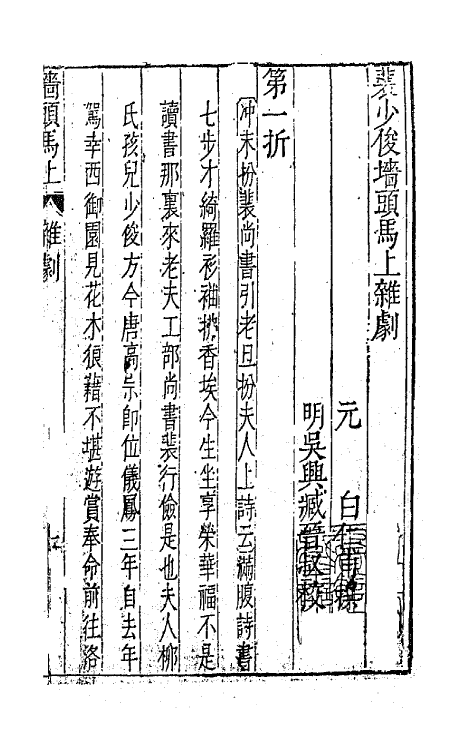 裴少俊墻頭馬上雜劇
元　白仁甫撰
明吳興臧晉叔校
第一折
冲末扮裴尚書引老旦扮夫人上詩云滿腹詩書
七步才綺羅衫袖拂香埃今生坐享榮華福不是
讀書那裏來老夫工部尚書裴行儉是也夫人柳
氏孩兒少俊方今唐高宗卽位儀鳳三年自去年
駕幸西御園見花木狼藉不堪遊賞奉命前往洛
墻頭馬上　雜劇　一